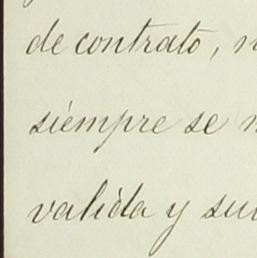 de contrato,
siempre se
valida y